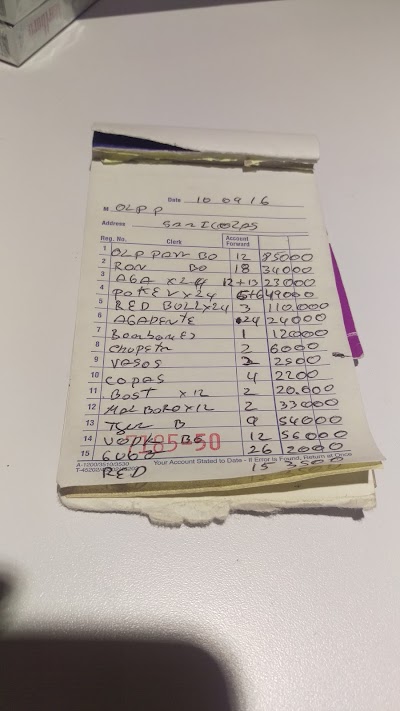 Date 10 09 16
M OLP P
Address SANICOLAS
Reg. No. Clerk Account Forward
1 OLP PARR BO 12 85000
2 RON BO 18 34000
3 AGA x24 12+13 23000
4 POKER x24 6+6 49000
5 RED BULL x24 3 110,000
6 AGADENTE 24 24000
7 Bombones 1 12000
8 Chupeta 2 6000
9 VASOS 2 2500
10 COPAS 4 2200
11 BOST x12 2 20.000
12 MALBORO x12 2 33000
13 B 9 54000
14 BO 12 56000
15 26 2000
A-1200/3510/3530 Your Account Stated to Date - If Error is Found, Return at Once
RED 15 3500